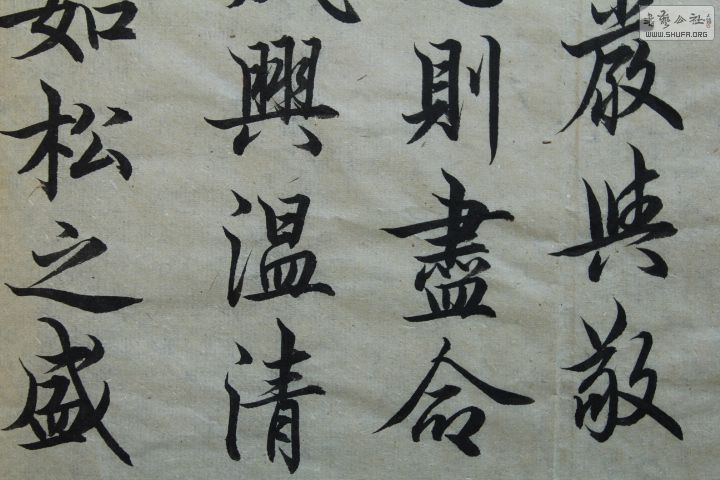 嚴與敬
則盡命
興温清
如松之盛
書藝公社
WWW.SHUFA.ORG